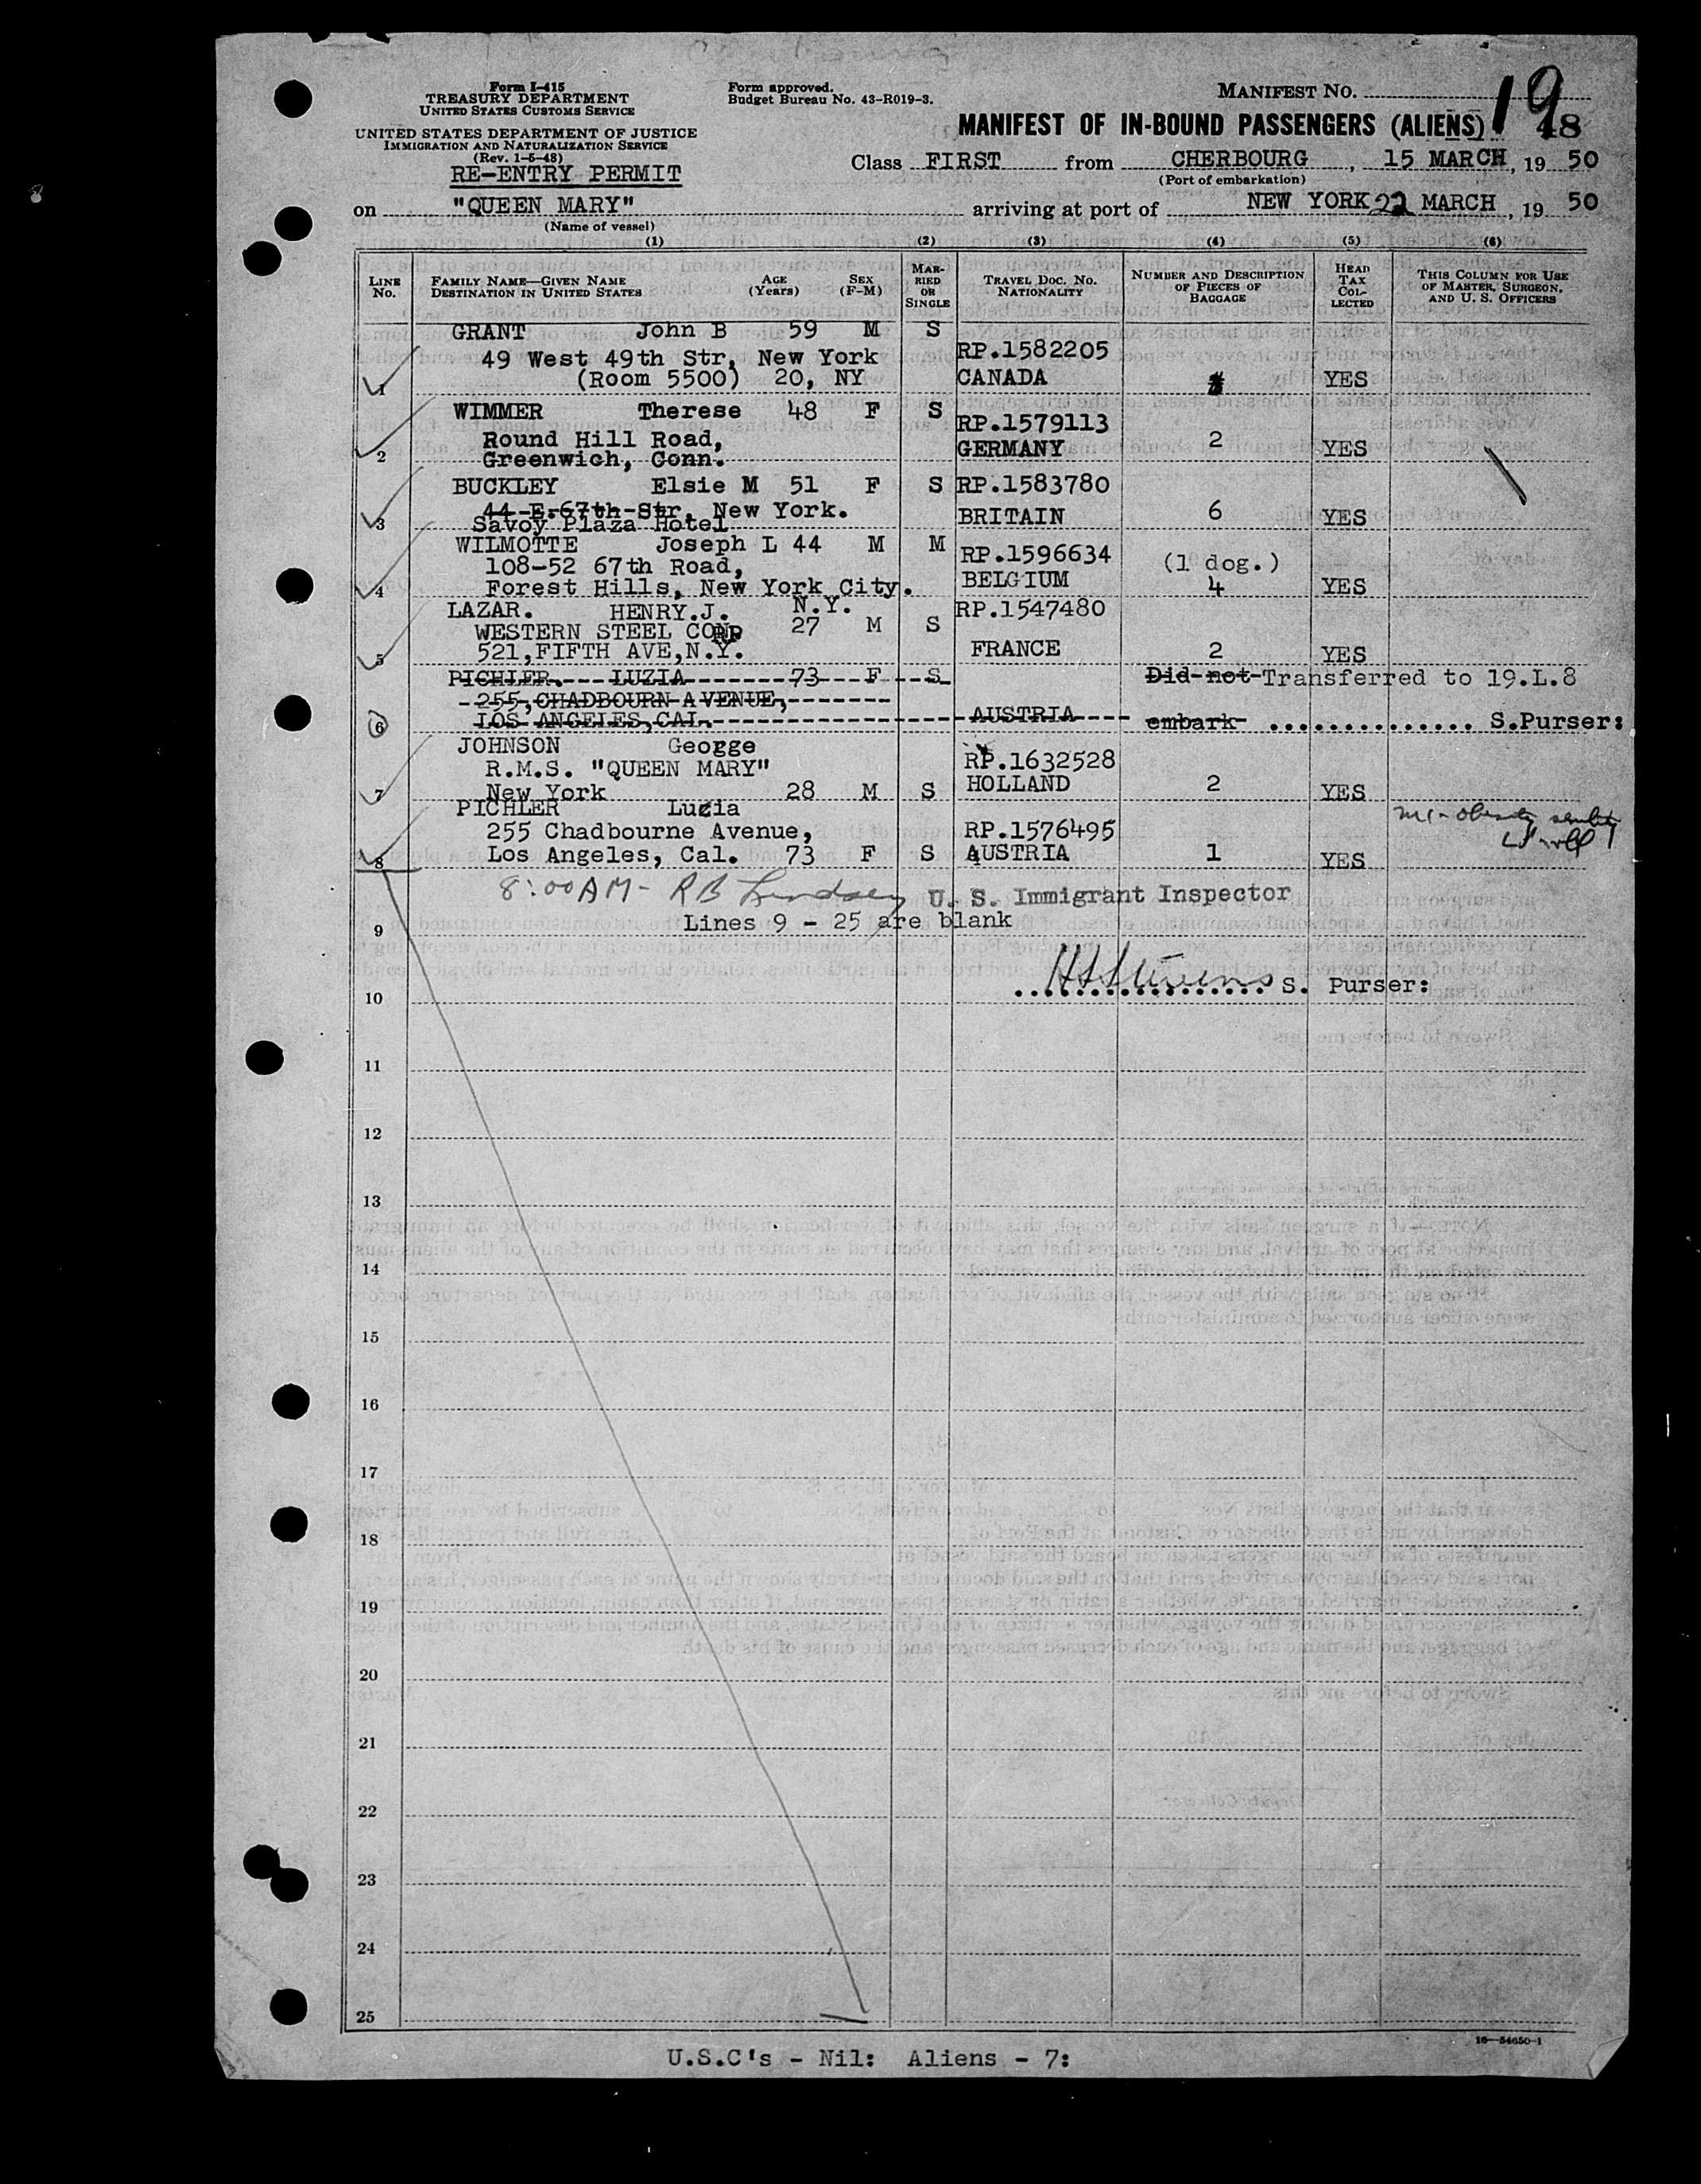 Form I-415
TREASURY DEPARTMENT
UNITED STATES CUSTOMS SERVICE
UNITED STATES DEPARTMENT OF JUSTICE
IMMIGRATION AND NATURALIZATION SERVICE
(Rev. 1-6-48)
RE-ENTRY PERMIT
Form approved.
Budget Bureau No. 43-R019-3.
MANIFEST NO. 19
MANIFEST OF IN-BOUND PASSENGERS (ALIENS) 48
Class FIRST from CHERBOURG, 15 MARCH, 19 50
(Port of embarkation)
on "QUEEN MARY" arriving at port of NEW YORK 22 MARCH, 19 50
(Name of vessel)
(1) (2) (3) (4) (5) (6)
LINE No. FAMILY NAME—GIVEN NAME DESTINATION IN UNITED STATES AGE (Years) SEX (F-M) MARRIED OR SINGLE TRAVEL DOC. NO. NATIONALITY NUMBER AND DESCRIPTION OF PIECES OF BAGGAGE HEAD TAX COLLECTED THIS COLUMN FOR USE OF MASTER, SURGEON, AND U. S. OFFICERS
GRANT John B 59 M S
49 West 49th Str, New York RP.1582205
1 (Room 5500) 20, NY CANADA YES
WIMMER Therese 48 F S RP.1579113
Round Hill Road, GERMANY 2
2 Greenwich, Conn. YES
BUCKLEY Elsie M 51 F S RP.1583780
44 E.67th Str, New York. BRITAIN 6 YES
3 Savoy Plaza Hotel
WILMOTTE Joseph L 44 M M RP.1596634
108-52 67th Road, (1 dog.)
4 Forest Hills, New York City. BELGIUM 4 YES
LAZAR. HENRY.J. N.Y. RP.1547480
WESTERN STEEL CORP 27 M S
5 521,FIFTH AVE,N.Y. FRANCE 2 YES
PICHLER. LUZIA 73 F S Did not Transferred to 19.L.8
255, CHADBOURN AVENUE,
6 LOS ANGELES, CAL. AUSTRIA embark .............. S.Purser:
JOHNSON Geogge
R.M.S. "QUEEN MARY" RP.1632528
7 New York 28 M S HOLLAND 2 YES
PICHLER Luzia
255 Chadbourne Avenue, RP.1576495
8 Los Angeles, Cal. 73 F S AUSTRIA 1 YES
8:00AM - RB Lindsey U. S. Immigrant Inspector
Lines 9 - 25 are blank
9
HH Stevens S. Purser:
10
11
12
13
14
15
16
17
18
19
20
21
22
23
24
25
16—54650-1
U.S.C's - Nil: Aliens - 7: